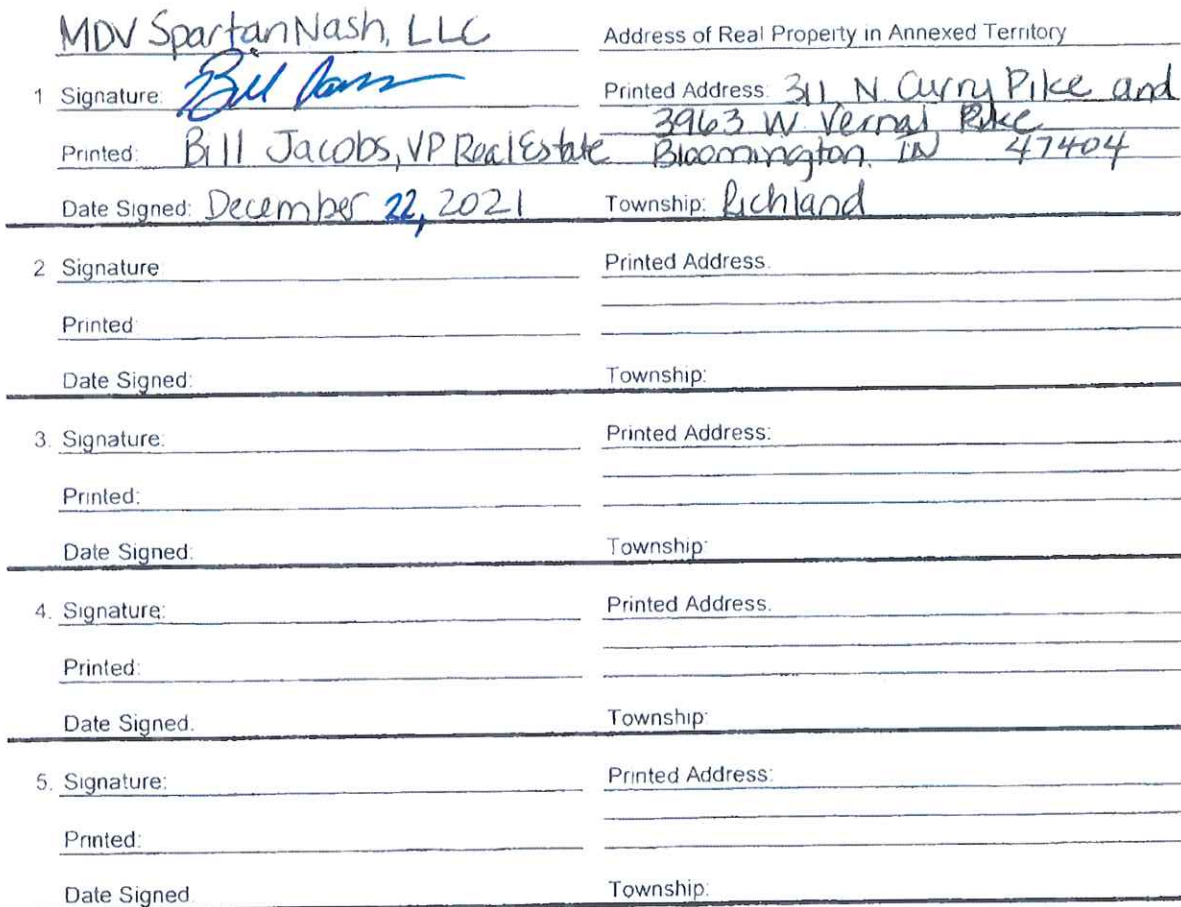 MDV SpartanNash, LLC
Address of Real Property in Annexed Territory
1 Signature: Bill
Printed Address: 311 N Curry Pike and
3963 W Vernal Pike
Printed: Bill Jacobs, VP Real Estate
Bloomington, IN 47404
Date Signed: December 22, 2021
Township: Richland
2 Signature
Printed Address.
Printed:
Date Signed:
Township:
3. Signature:
Printed Address:
Printed:
Date Signed:
Township:
4. Signature:
Printed Address.
Printed:
Date Signed.
Township:
5. Signature:
Printed Address:
Printed:
Date Signed.
Township: